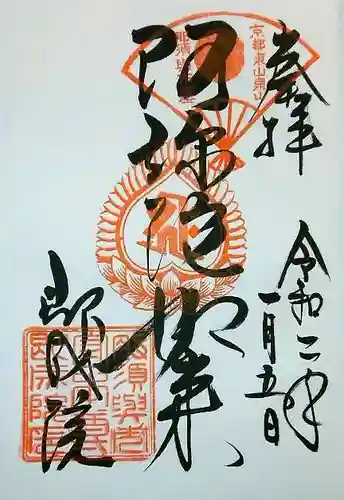 奉拝
京都東山泉山
令和二年
一月五日
阿弥陀如来
即成院